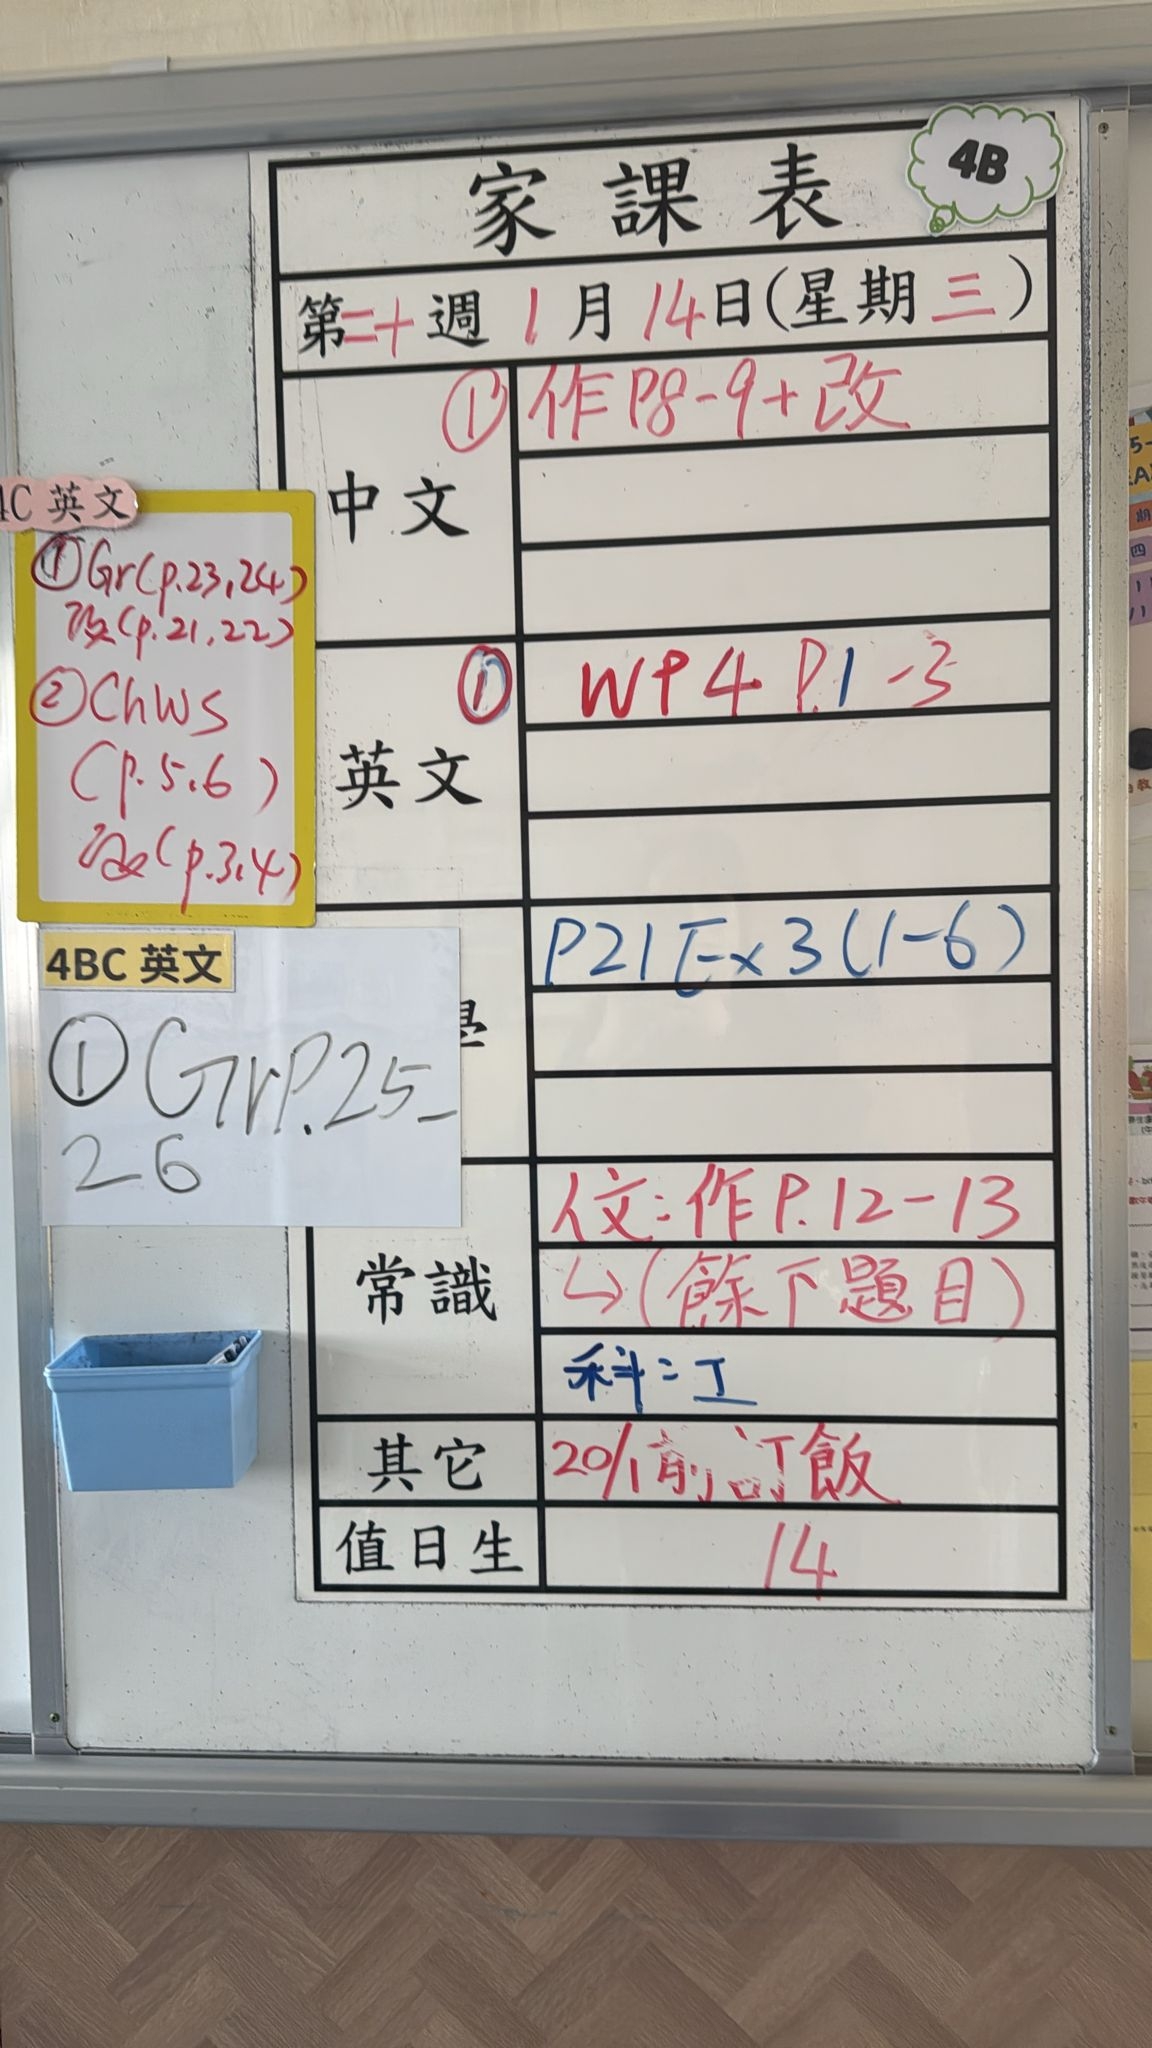 家課表
4B
第二十週 1月14日(星期三)
中文
① 作P8-9+改
英文
① WP4 P.1-3
P21 Ex3(1-6)
常識
人文:作P.12-13
↳(餘下題目)
科:工
其它
20/1前訂飯
值日生
14
4C 英文
① Gr(p.23,24)
改(p.21,22)
② ChWS
(p.5,6)
改(p.3,4)
4BC 英文
① Gr P.25-
26